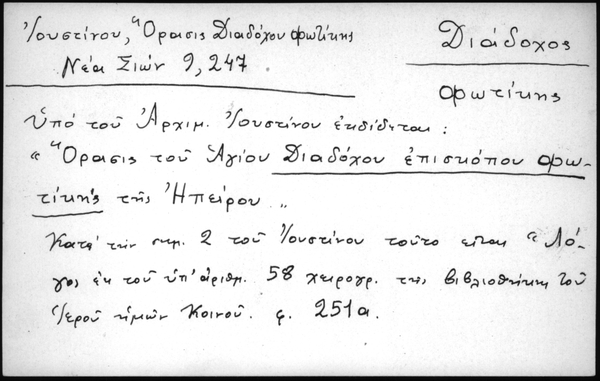 Ἰουστίνου, "Ὅρασις Διαδόχου Φωτίκης
Διάδοχος
Νέα Σιών 9, 247
Φωτίκης
Ὑπό τοῦ Ἀρχιμ. Ἰουστίνου ἐκδίδεται :
" Ὅρασις τοῦ Ἁγίου Διαδόχου ἐπισκόπου Φω-
τίκης τῆς Ἠπείρου „
Κατά τήν σημ. 2 τοῦ Ἰουστίνου τοῦτο εἶναι " Λό-
γος ἐκ τοῦ ὑπ' ἀριθμ. 58 χειρογρ. τῆς βιβλιοθήκης τοῦ
Ἱεροῦ ἡμῶν Κοινοῦ. φ. 251α.